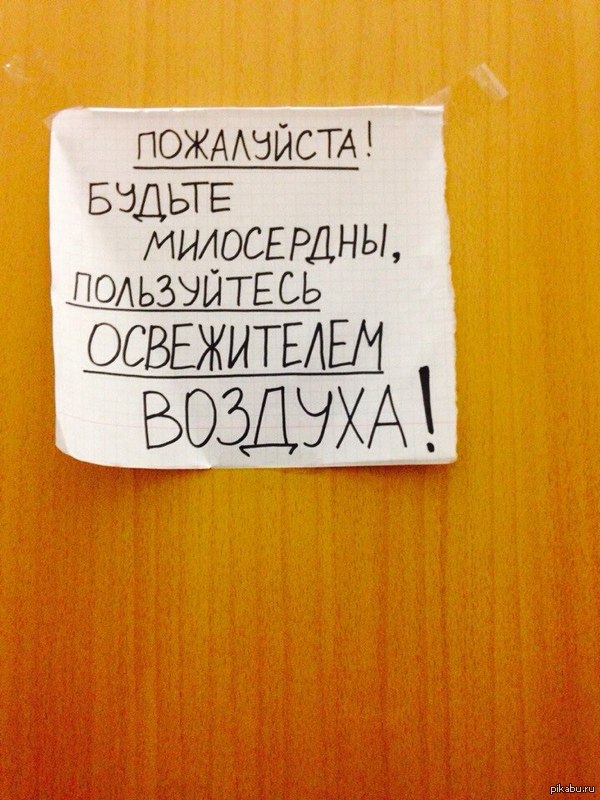 ПОЖАЛУЙСТА!
БУДЬТЕ
МИЛОСЕРДНЫ,
ПОЛЬЗУЙТЕСЬ
ОСВЕЖИТЕЛЕМ
ВОЗДУХА!
pikabu.ru